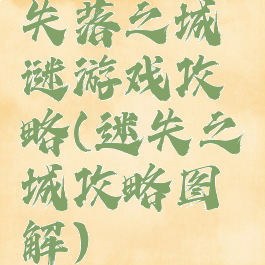 失落之城
谜游戏攻
略(迷失之
城攻略图
解)